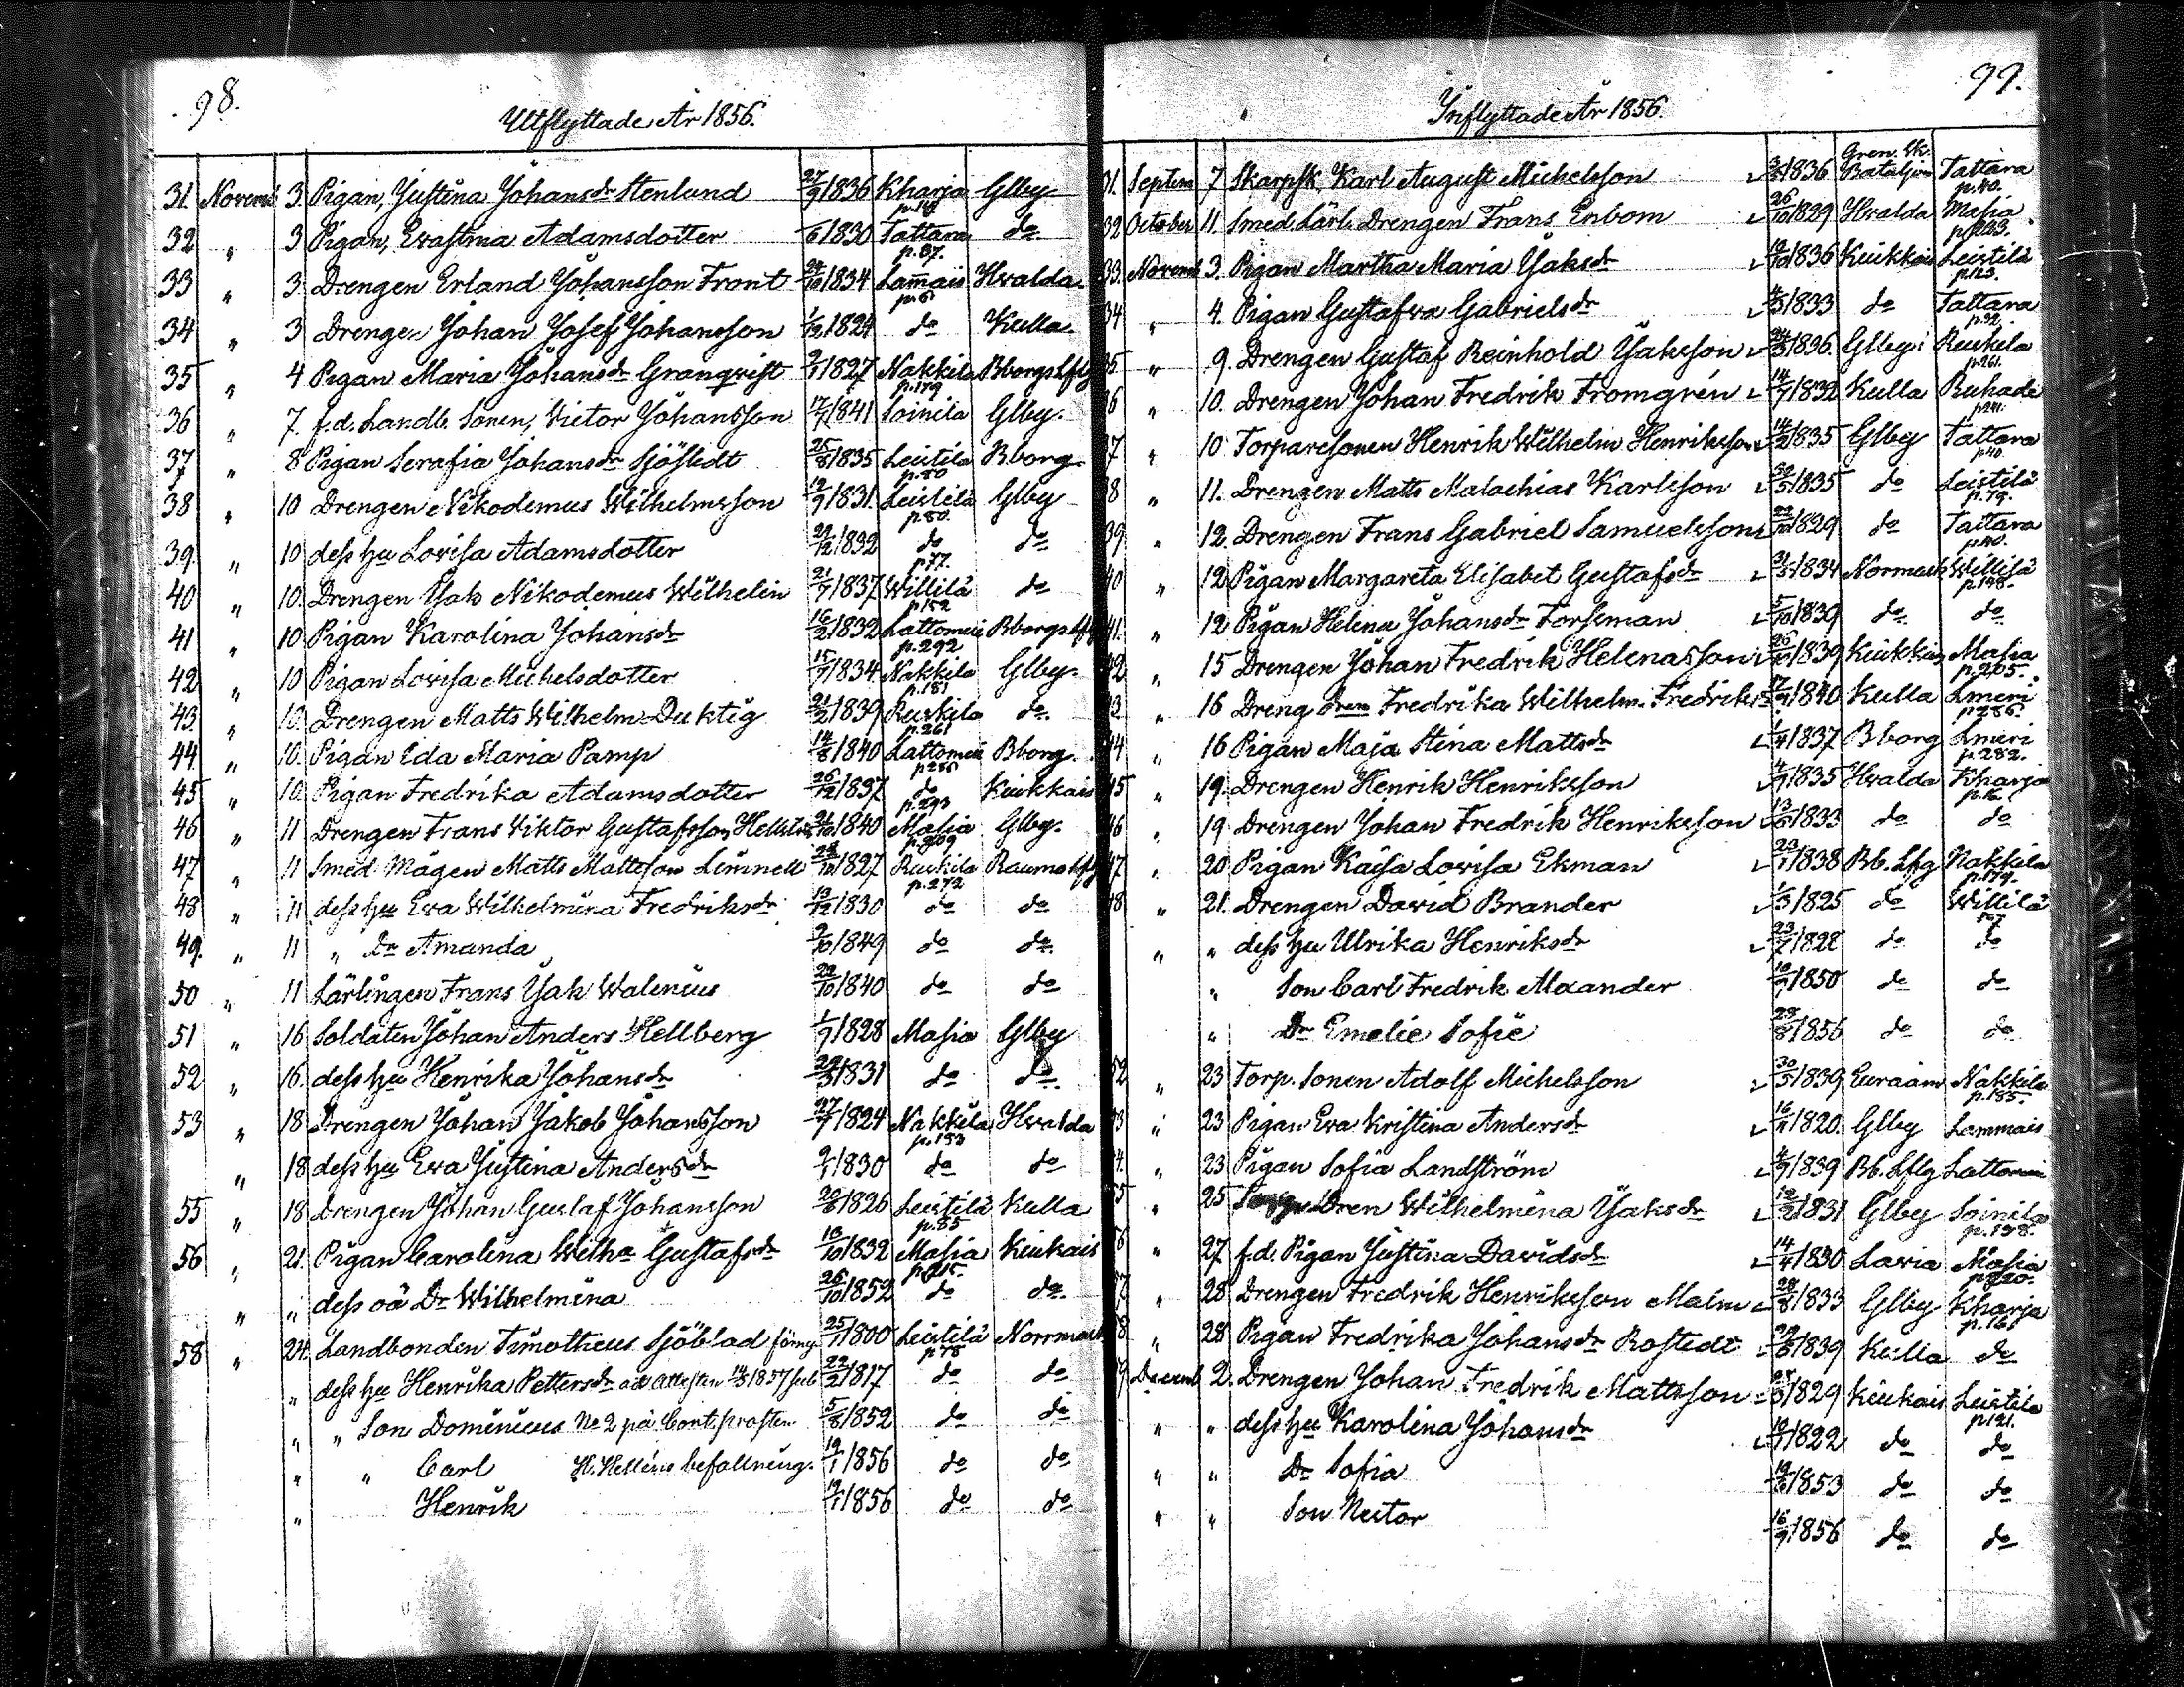 98.
Utflyttade År 1856.
31. Novemb 3. Pigan, Justina Johansdr Stenlund 27/9 1836 Kharja p.14 Glby
32 " 3 Pigan, Evastina Adamsdotter /6 1830 Tattara p.37. do
33 " 3 Drengen Erland Johansson Front 24/10 1834 Lammais p.6 Hvalda
34 " 3 Drengen Johan Josef Johansson 1/12 1824 do Kulla
35 " 4 Pigan Maria Johansdr Granqvist 1827 Nakkila p.179 Bborgs Lfg
36 " 7. f.d. Landb. Sonen, Victor Johansson 17/7 1841 Soinila Glby.
37 " 8 Pigan Serafia Johansdr Sjöstedt 25/8 1835 Leistilä p.80 Bborg
38 " 10 Drengen Nikodemus Wilhelmsson 12/9 1831. Leistilä p.80. Glby
39. " 10 dess hu Lovisa Adamsdotter 22/12 1832 do p.77. do
40 " 10. Drengen Jak Nikodemus Wilhelm 21/7 1837 Willilä p.152 do
41 " 10 Pigan Karolina Johansdr 16/2 1832 Lattomeri p.292 Bborgs Lfg
42 " 10 Pigan Lovisa Michelsdotter 15/7 1834. Nakkila p.181 Glby.
43 " 10. Drengen Matts Wilhelm Duktig 21/2 1839 Ruskila p.261 do.
44 " 10. Pigan Eda Maria Pamp 14/8 1840 Lattomeri Bborg.
45 " 10. Pigan Fredrika Adamsdotter 26/12 1837 do p.293 Kiukkais
46 " 11 Drengen Frans Viktor Gustafsson Hellström 21/10 1840 Masia p.209 Glby.
47 " 11 Smed Mågen Matts Mattsson Linnell 1827 Ruskila p.272 Raumo Lfg
48 " 11 dess hu Eva Wilhelmina Fredriksdr 13/12 1830 do do
49. " 11 " Dr Amanda 9/10 1849 do do.
50 " 11 Lärlingen Frans Jak Walenius 22/10 1840 do do
51 " 16 Soldaten Johan Anders Hellberg 1/7 1828 Masia Glby
52 " 16. dess hu Henrika Johansdr 1831 do do.
53 " 18 Drengen Johan Jakob Johansson 27/7 1824 Nakkila p.183 Hvalda
" 18 dess hu Eva Justina Andersdr 9/1 1830 do do
55 " 18 Drengen Johan Gustaf Johansson 20/8 1826 Leistilä p.85 Kulla
56 " 21. Pigan Carolina Wilha Gustafsdr 13/10 1832 Masia p.215. Kiukais
" " dess oä Dr Wilhelmina 26/10 1852 do do.
58 " 24. Landbonden Timotheus Sjöblad förny 25/1 1800 Leistilä p.78 Norrmark
" dess hu Henrika Pettersdr ad attesten 1857 sub 22/2 1817 do do
" " Son Dominicus No 2 på Cont.prosten 5/8 1852 do do
" " Carl H. Helléns befallning. 19/1 1856 do do
" Henrik 19/1 1856 do do
99.
Inflyttade År 1856.
31. Septem 7 Skarpsk. Karl August Michelsson 1836 Gren. Sk. Bataljon Tattara p.40.
32 October 11. Smed. Lärl. Drengen Frans Enbom 26/10 1829 Hvalda Masia p.223.
33. Novemb 3. Pigan Martha Maria Jaksdr 12/10 1836 Kiukkais Leistilä p.123.
34 " 4. Pigan Gustafva Gabrielsdr 1833 do Tattara p.32
35 " 9. Drengen Gustaf Reinhold Jaksson 1836. Glby Ruskila p.261.
36 " 10. Drengen Johan Fredrik Fromgrén 14/7 1832 Kulla Ruhade p.241.
37 " 10 Torparesonen Henrik Wilhelm Henriksson 14/2 1835 Glby Tattara p.40.
38 " 11. Drengen Matts Malachias Karlsson 1835 do Leistilä p.79.
39 " 12. Drengen Frans Gabriel Samuelsson 1829 do Tattara p.40.
40 " 12 Pigan Margareta Elisabet Gustafsdr 1834 Normark Willilä p.148.
41. " 12 Pigan Helena Johansdr Forsman 5/10 1839 do do
42 " 15 Drengen Johan Fredrik Helenasson 26/10 1839 Kiukkais Masia p.205.
43 " 16 Dreng dren Fredrika Wilhelm. Fredriks 17/9 1840 Kulla Lmeri p.286.
44 " 16 Pigan Maja Stina Mattsdr 1/4 1837 Bborg Lmeri p.282.
45 " 19. Drengen Henrik Henriksson 4/7 1835 Hvalda Kharja p.16
46 " 19 Drengen Johan Fredrik Henriksson 13/6 1833 do do
47 " 20 Pigan Kajsa Lovisa Ekman 23/1 1838 Bb. Lfg Nakkila p.179.
48 " 21. Drengen David Brander 1/3 1825 do Willilä
" " dess hu Ulrika Henriksdr 1828 do do
" Son Carl Fredrik Alexander 1850 do do
" Dr Emelie Sofie 23/8 1856 do do
52 " 23 Torp. Sonen Adolf Michelsson 30/5 1839 Euraåm. Nakkila p.185.
53 " 23 Pigan Eva Kristina Andersdr 1820. Glby Lammais
54. " 23 Pigan Sofia Landström 4/9 1839 Bb. Lflg Lattomeri
55 " 25 dren Wilhelmina Jaksdr 12/2 1831 Glby Soinila p.138.
56 " 27 f.d. Pigan Justina Davidsdr 14/4 1830 Lavia Masia p.220.
57 " 28 Drengen Fredrik Henriksson Malm 28/8 1833 Glby Kharja p.16
58 " 28 Pigan Fredrika Johansdr Rostedt 1839 Kulla do
59 Decemb 2. Drengen Johan Fredrik Mattsson 1829 Kiukais Leistilä p.121.
" " dess hu Karolina Johansdr 1822 do do
" " Dr Sofia 1853 do do
" " Son Nestor 16/9 1856 do do